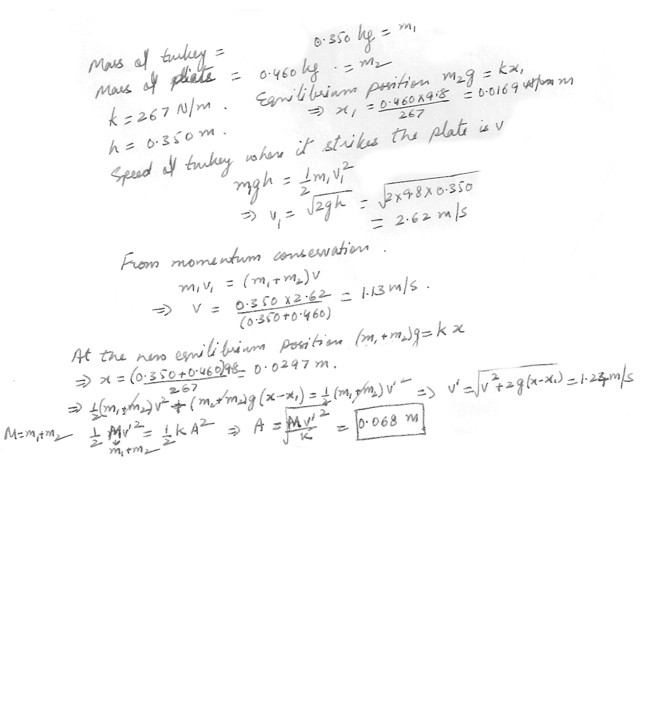 Mass of turkey = 0.350 kg = m₁
Mass of plate = 0.460 kg. = m₂
k = 267 N/m. Equilibrium position m₂g = kx₁
h = 0.350 m. ⇒ x₁ = 0.460×9.8/267 = 0.0169 m
Speed of turkey when it strikes the plate is v
mgh = ½m₁v₁²
⇒ v₁ = √2gh = √2×9.8×0.350
= 2.62 m/s
From momentum conservation.
m₁v₁ = (m₁+m₂)v
⇒ v = 0.350×2.62/(0.350+0.460) = 1.13 m/s.
At the new equilibrium position (m₁+m₂)g = kx
⇒ x = (0.350+0.460)9.8/267 = 0.0297 m.
⇒ ½(m₁+m₂)v² + (m₁+m₂)g(x-x₁) = ½(m₁+m₂)v'² ⇒ v' = √v²+2g(x-x₁) = 1.23 m/s
M=m₁+m₂ ½Mv'² = ½kA² ⇒ A = √Mv'²/K = 0.068 m
m₁+m₂